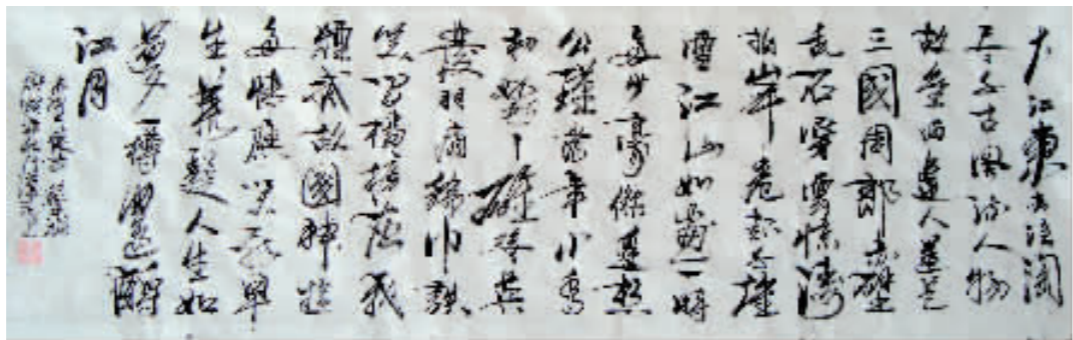 大江東去浪淘
尽千古風流人物
故壘西邊人道是
三國周郎赤壁
乱石穿雲惊濤
拍岸卷起千堆
雪江山如畫一時
多少豪傑遥想
公瑾當年小喬
初嫁了雄姿英
發羽扇綸巾談
笑間檣櫓灰飛
煙滅故國神遊
多情應笑我早
生華髮人生如
夢一樽還酹
江月